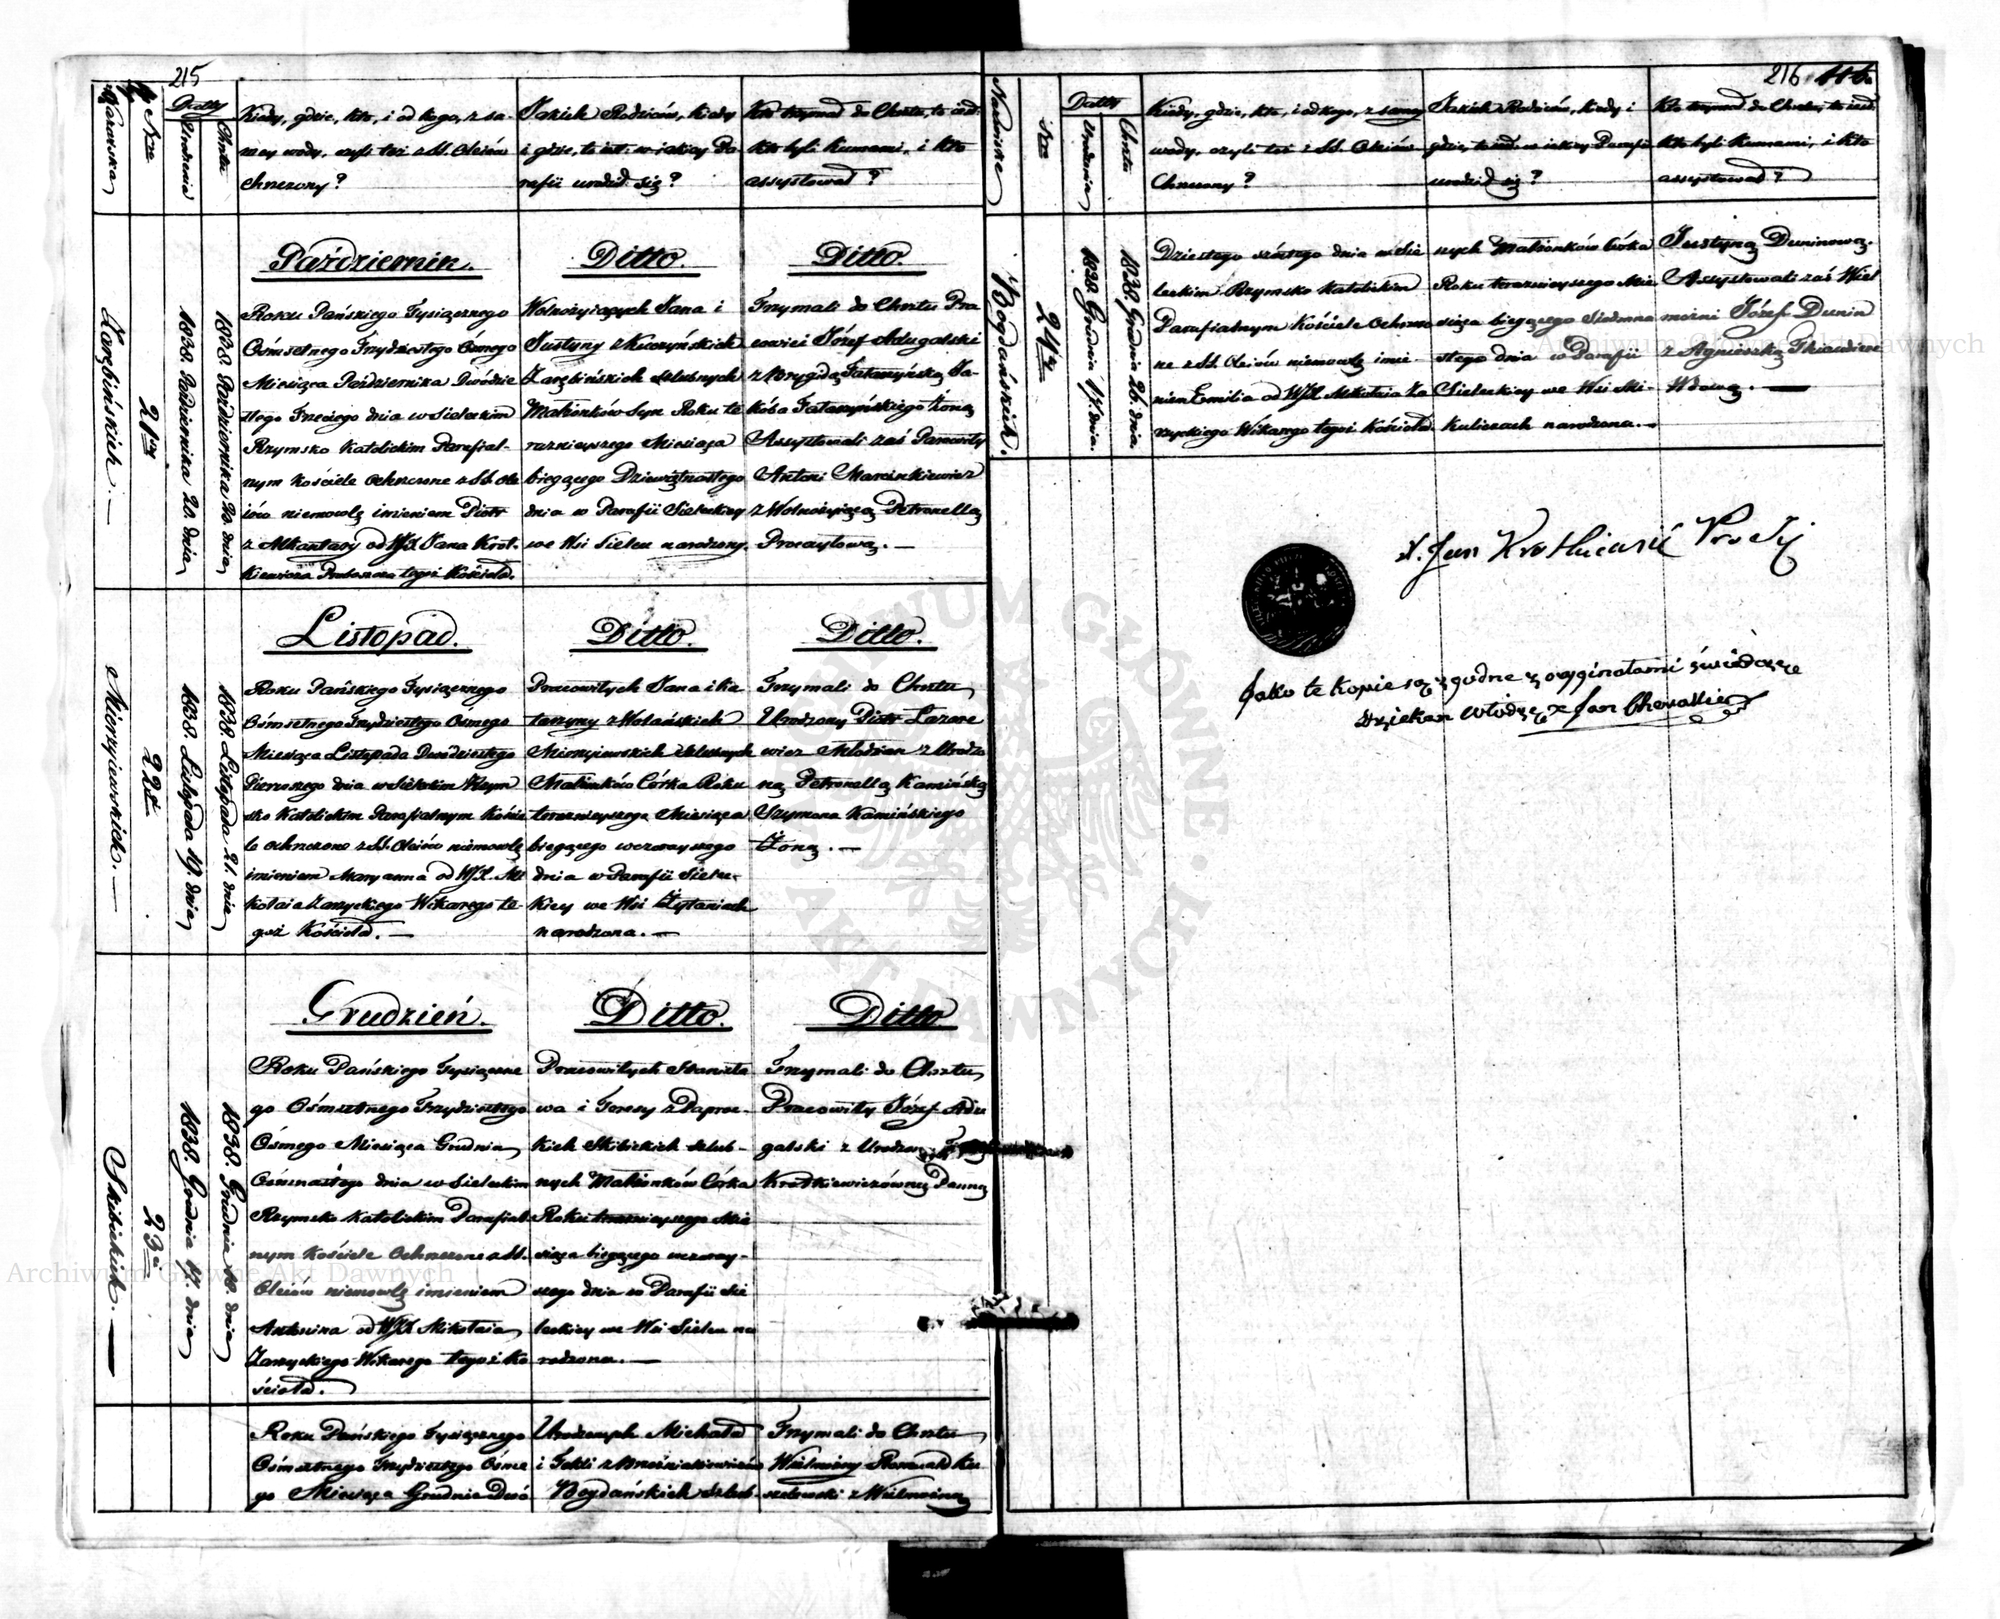 215
Nazwiska
Nro
Datty
Urodzenia
Chrztu
Kiedy, gdzie, kto, i od kogo, z sa-
mey wody, czyli też z SS. Oleiów
Chrzczony?
Jakich Rodziców, kiedy
i gdzie, to iest: w iakiey Pa
rafii urodził się?
Kto trzymał do Chrztu, to iest:
kto byli Kumami, i kto
assystował?
Zarębińskich.
21szy
1838. Października 20. dnia
Październik.
Roku Pańskiego Tysiącznego
Ośmsetnego Trzydziestego Osmego
Miesiąca Października Dwudzie
stego Trzeciego dnia w Sieleckim
Rzymsko Katolickim Parafial-
nym Kościele ochrzczone z SS. Ole
iów niemowlę imieniem Piotr
z Alkantary od WJX. Jana Krot-
kiewicza Proboszcza tegoż Kościoła.
Ditto.
Wolnożyiących Jana i
Justyny z
Zarębińskich szlubnych
Małżonków Syn Roku te
raznieyszego Miesiąca
biegącego Dziewiętnastego
dnia w Parafii Sieleckiey
we Wsi Sielcu narodzony.
Ditto.
Trzymali do Chrztu Pra
cowici Józef Adugalski
z Brygidą Ja-
kóba Żoną
Assystowali zaś Pracowity
Antoni Marcinkiewicz
z Wolnożyiącą Petronellą
Mierzyiewskich.
1838. Listopada 19. dnia
1838. Listopada 21. dnia
Listopad.
Roku Pańskiego Tysiącznego
Ośmsetnego Trzydziestego Osmego
Miesiąca Listopada Dwudziestego
Pierwszego dnia w Sieleckim Rzym
sko Katolickim Parafialnym Koście
le ochrzczone z SS. Oleiów niemowlę
imieniem Maryanna od WJX. Mi
kołaia Zarzyckiego Wikarego te-
goż Kościoła.
Ditto.
Pracowitych Jana i Ka
tarzyny z Wolańskich
Mierzyiewskich szlubnych
Małżonków Córka Roku
teraznieyszego Miesiąca
biegącego wczorayszego
dnia w Parafii Siele-
ckiey we Wsi Żytaniach
narodzona.
Ditto.
Trzymali do Chrztu
Urodzony Piotr Lazare
wicz Młodzian z Urodzo
ną Petronellą Kamińską
Szymona Kamińskiego
Żoną.
Skibickich.
1838. Grudnia 17. dnia
1838. Grudnia 18. dnia
Grudzień.
Roku Pańskiego Tysiączne
go Ośmsetnego Trzydziestego
Osmego Miesiąca Grudnia
Ośmnastego dnia w Sieleckim
Rzymsko Katolickim Parafial
nym Kościele Ochrzczone z SS.
Oleiów niemowlę imieniem
Antonina od WJX. Mikołaia
Zarzyckiego Wikarego tegoż Ko
ścioła.
Ditto.
Pracowitych Stanisła
wa i Teresy z Paproc-
kich Skibickich szlub-
nych Małżonków Córka
Roku teraznieyszego Mie
siąca biegącego wczoray-
szego dnia w Parafii Sie
leckiey we Wsi Sielcu na
rodzona.
Ditto
Trzymali do Chrztu
Pracowity Józef Adu
galski z
Krotkiewiczówną Panną
Roku Pańskiego Tysiącznego
Ośmsetnego Trzydziestego Osme
go Miesiąca Grudnia Dwu
Urodzonych Michała
i Tekli z
Bogdańskich szlub-
Trzymali do Chrztu
Wielmożny Romuald Ku
szelewski z Wielmożną
216
Nazwiska
Nro
Datty
Urodzenia
Chrztu
Kiedy, gdzie, kto, i od kogo, z samey
wody, czyli też z SS. Oleiów
Chrzczony?
Jakich Rodziców, kiedy i
gdzie, to iest: w iakiey Parafii
urodził się?
Kto trzymał do Chrztu, to iest:
kto byli Kumami, i kto
assystował?
Bogdańskich.
24ty
1838. Grudnia 17. dnia.
1838. Grudnia 26. dnia
Dziestego szóstego dnia w Sie
leckim Rzymsko Katolickim
Parafialnym Kościele Ochrzczo
ne z SS. Oleiów niemowlę imie-
niem Emilia od WJX. Mikołaia Za
rzyckiego Wikarego tegoż Kościoła
nych Małżonków Córka
Roku teraznieyszego Mie
siąca biegącego Siedmna
stego dnia w Parafii
Sieleckiey we Wsi Mi-
kuliczach narodzona.
Justyną Duninową.
Assystowali zaś Wiel
możni Józef Dunin
z Agnieszką
Wdową.
X. Jan Krotkiewicz
Jako te kopie są zgodne z orygginałami świadczę
Dziekan Włodz. X Jan Chevallier
Archiwum Główne Akt Dawnych
Archiwum Główne Akt Dawnych
ARCHIWUM GŁÓWNE AKT DAWNYCH